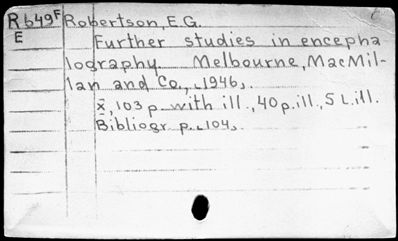 R b49F Robertson, E.G.
E Further studies in encepha
lography. Melbourne, MacMil-
lan and Co., [1946].
x̄, 103 p. with ill., 40 p. ill., 5 L. ill.
Bibliogr. p. [104].